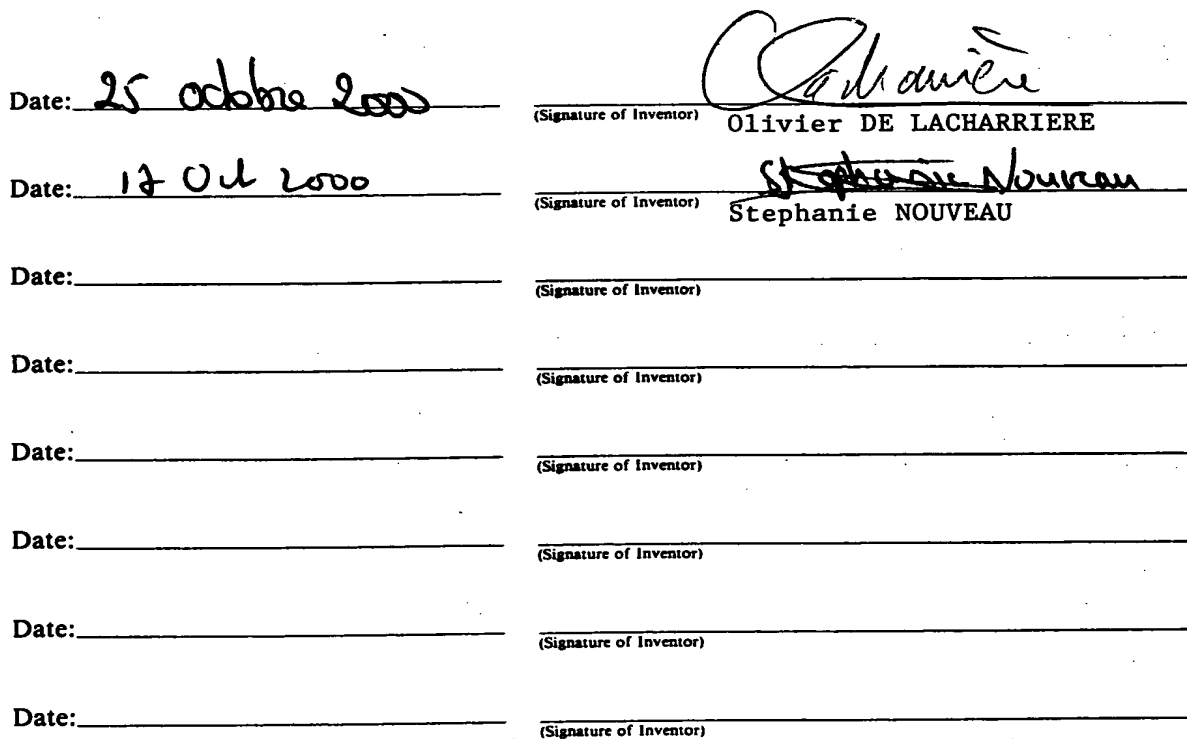 Date: 25 octobre 2000
(Signature of Inventor) Olivier DE LACHARRIERE
Date: 17 Oct 2000 Stephanie Nouveau
(Signature of Inventor) Stephanie NOUVEAU
Date:
(Signature of Inventor)
Date:
(Signature of Inventor)
Date:
(Signature of Inventor)
Date:
(Signature of Inventor)
Date:
(Signature of Inventor)
Date:
(Signature of Inventor)